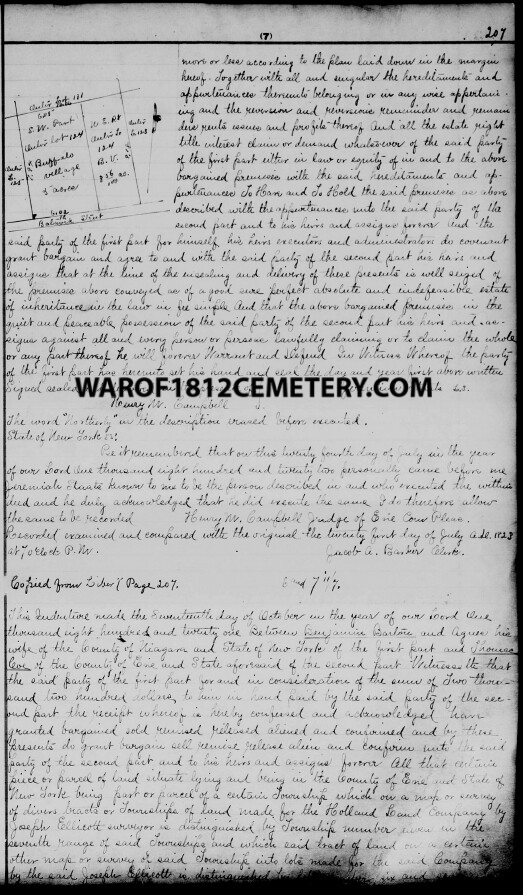 (7)
207
more or less according to the plan laid down in the margin
hereof. Together with all and singular the hereditaments and
appurtenances thereunto belonging or in any wise appertain-
ing and the reversion and reversions remainder and remain
ders rents issues and profits thereof And all the estate right
title interest claim or demand whatsoever of the said party
of the first part either in law or equity of in and to the above
bargained premises with the said hereditaments and ap-
purtenances To Have and To Hold the said premises as above
described with the appurtenances unto the said party of the
second part and to his heirs and assigns forever And the
S. W. Part
Outer Lot 124
Buffalo
village
5 acres
said party of the first part for himself, his heirs executors and administrators do covenant
grant bargain and agree to and with the said party of the second part his heirs and
assigns that at the time of the ensealing and delivery of these presents is well seized of
the premises above conveyed as of a good sure perfect absolute and indefeasible estate
of inheritance in the law in fee simple And that the above bargained premises in the
quiet and peaceable possession of the said party of the second part his heirs and as-
signs against all and every person or persons lawfully claiming or to claim the whole
or any part thereof he will forever Warrant and Defend In Witness Whereof the party
of the first part has hereunto set his hand and seal the day and year first above written
Signed sealed
WAROF1812CEMETERY.COM
Henry M. Campbell
The word "Northerly" in the description erased before executed.
State of New York
Be it remembered that on this twenty fourth day of July in the year
of our Lord one thousand eight hundred and twenty two personally came before me
Jeremiah known to me to be the person described in and who executed the within
deed and he duly acknowledged that he did execute the same I do therefore allow
the same to be recorded Henry M. Campbell Judge of Erie Com Pleas.
Recorded examined and compared with the original the twenty first day of July A.D. 1823
at 7 o'clock P.M. Jacob A. Barker Clerk.
Copied from Liber 7 Page 207.
This Indenture made the Seventeenth day of October in the year of our Lord One
thousand eight hundred and twenty one Between Benjamin and Agnes his
wife of the County of Niagara and State of New York of the first part and Thomas
Coe of the County of Erie and State aforesaid of the second part Witnesseth that
the said party of the first part for and in consideration of the sum of Two thou-
sand two hundred dollars, to him in hand paid by the said party of the sec-
ond part the receipt whereof is hereby confessed and acknowledged have
granted bargained sold remised released aliened and confirmed and by these
presents do grant bargain sell remise release alien and confirm unto the said
party of the second part and to his heirs and assigns forever All that certain
piece or parcel of land situate lying and being in the County of Erie and State of
New York being part or parcel of a certain Township which on a map or survey
of divers tracts or Townships of land made for the Holland Land Company by
Joseph Ellicott surveyor is distinguished by Township number in the
seventh range of said Townships and which said tract of land on a certain
other map or survey of said Township into lots made for the said Company
by the said Joseph Ellicott is distinguished